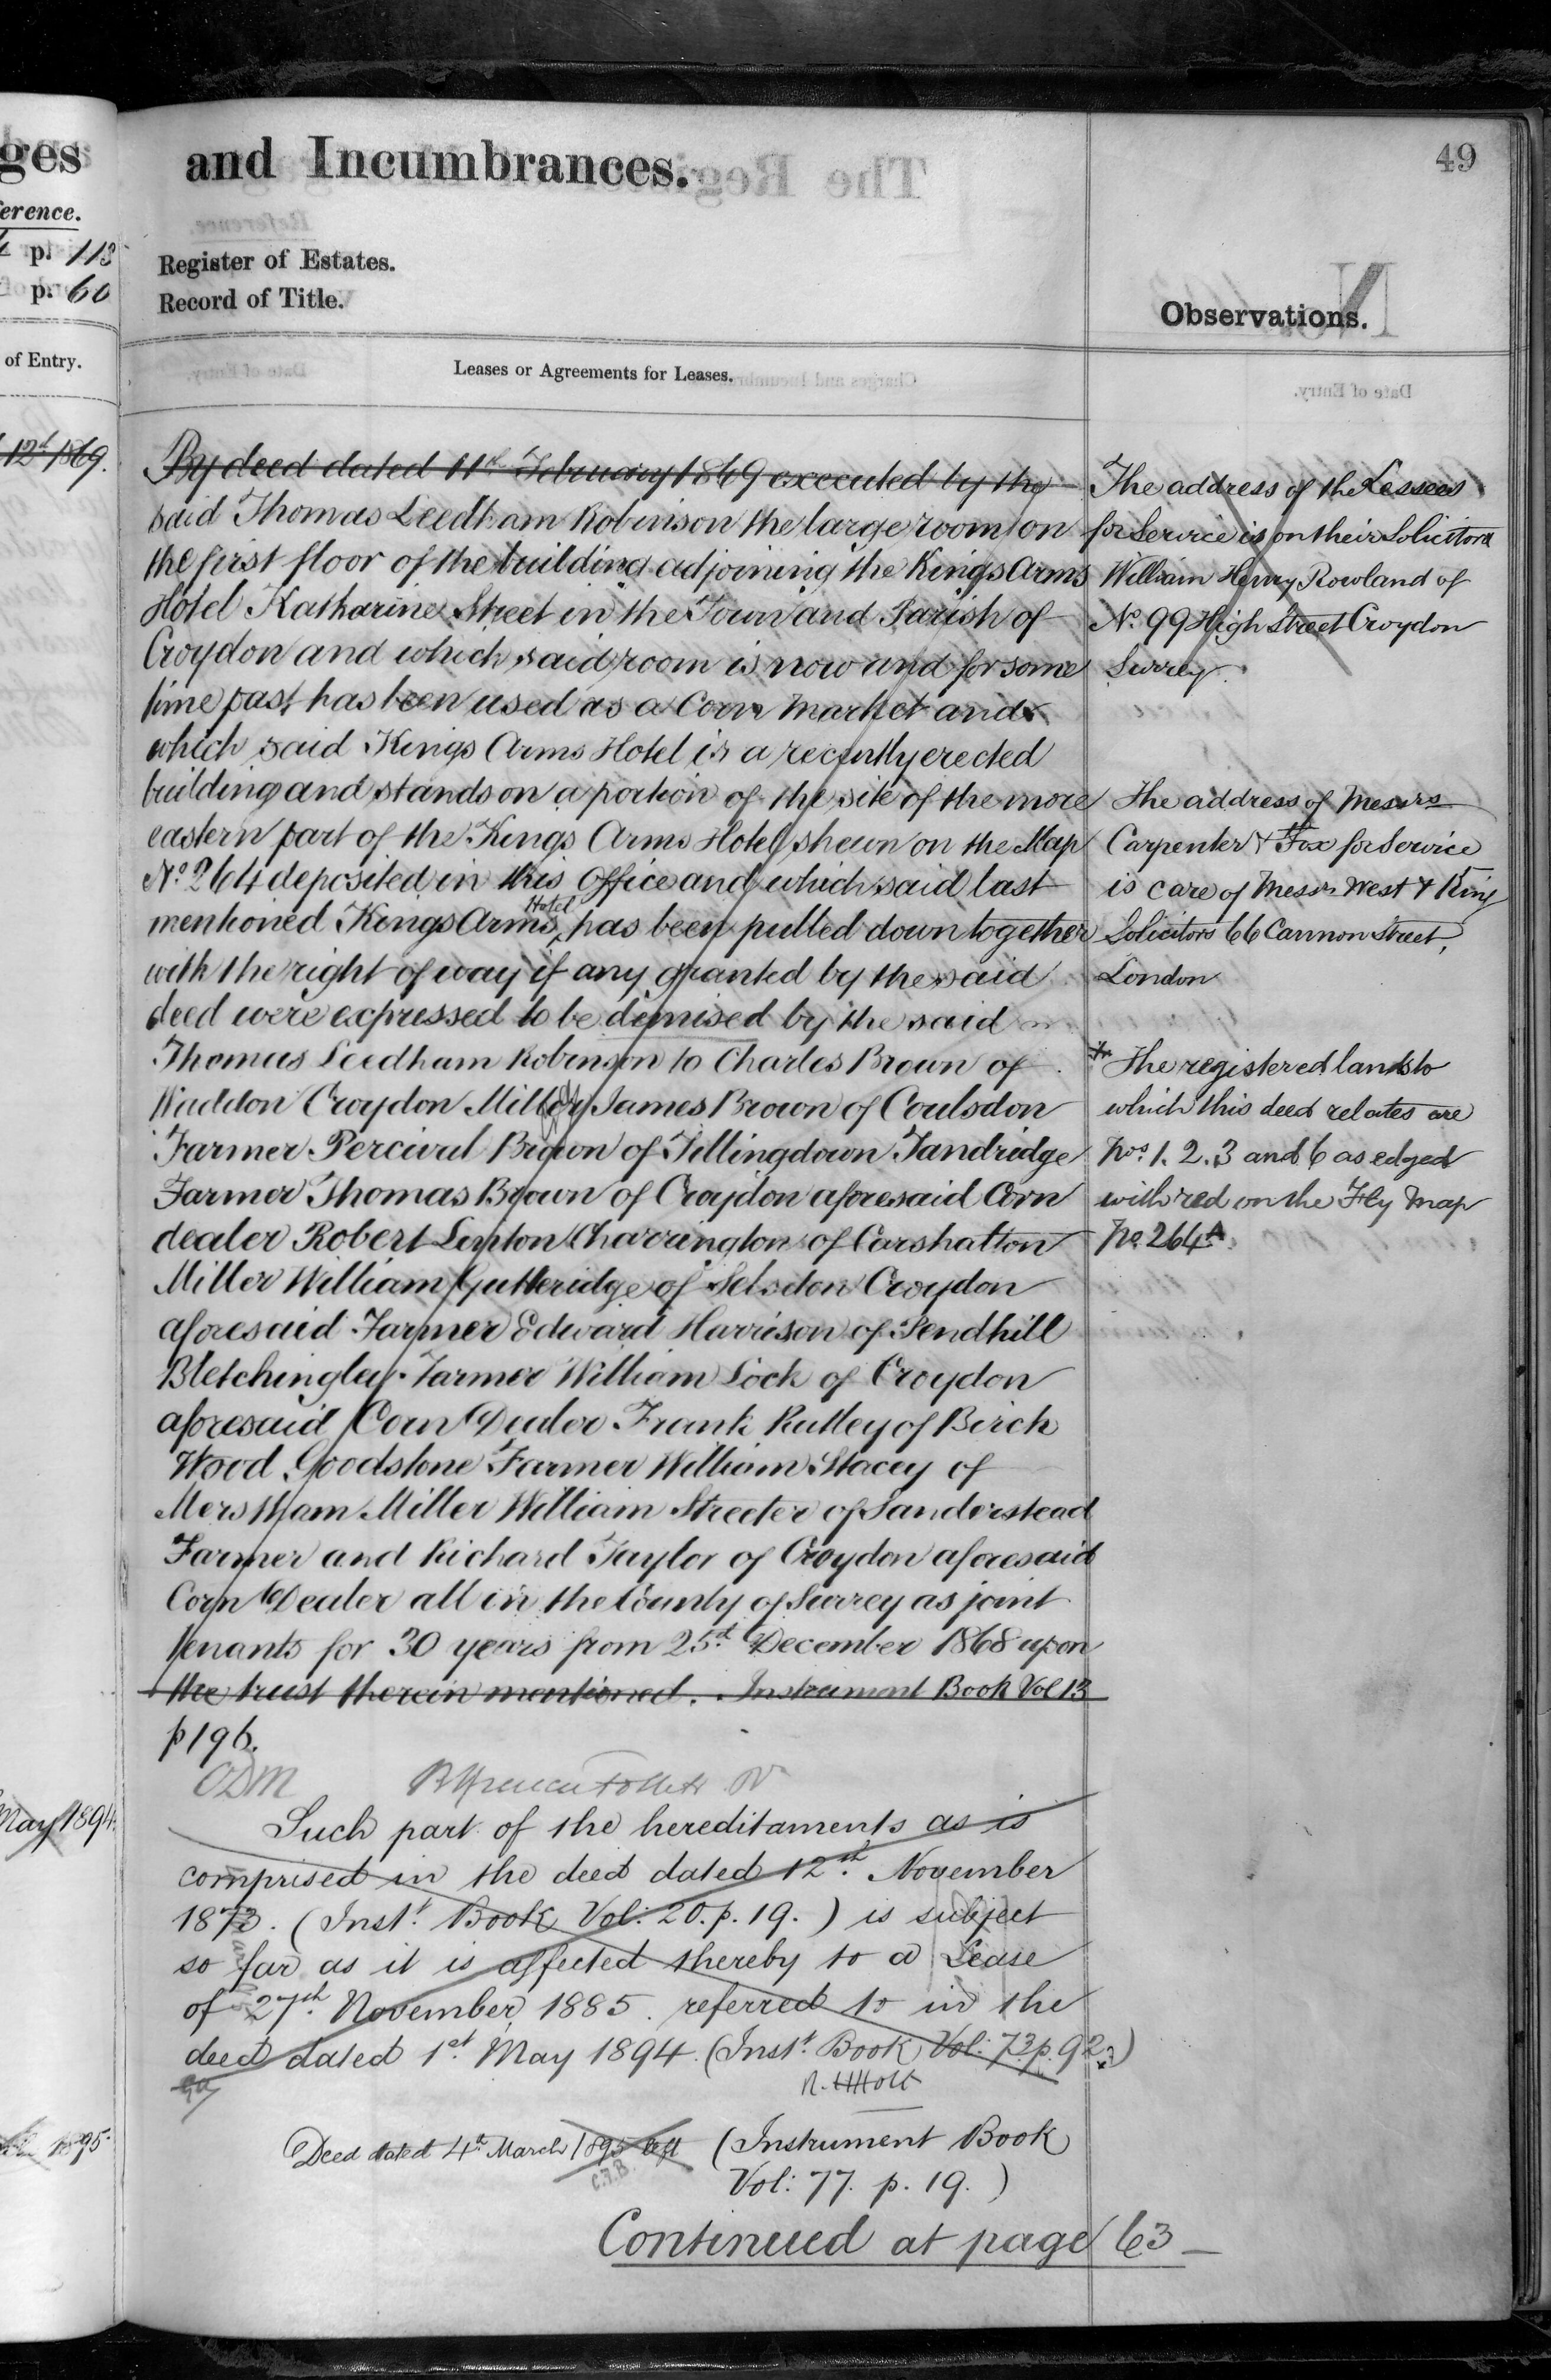 ges
erence.
p. 113
p. 60
of Entry.
12th 1869.
May 1894.
1895.
and Incumbrances.
49
Register of Estates.
Record of Title.
Observations.
Leases or Agreements for Leases.
By deed dated 11th February 1869 executed by the
said Thomas Leedham Robinson the large room on
the first floor of the building adjoining the Kings Arms
Hotel Katharine Street in the Town and Parish of
Croydon and which said room is now and for some
time past has been used as a Corn Market and
which said Kings Arms Hotel is a recently erected
building and stands on a portion of the site of the more
eastern part of the Kings Arms Hotel shewn on the Map
No. 264 deposited in this Office and which said last
mentioned Kings Arms Hotel has been pulled down together
with the right of way if any granted by the said
deed were expressed to be demised by the said
Thomas Leedham Robinson to Charles Brown of
Waddon Croydon Miller James Brown of Coulsdon
Farmer Percival Brown of Tillingdown Tandridge
Farmer Thomas Brown of Croydon aforesaid Corn
dealer Robert Charrington of Carshalton
Miller William Gutteridge of Selsdon Croydon
aforesaid Farmer Edward Harrison of Pendhill
Bletchingley Farmer William Lock of Croydon
aforesaid Corn Dealer Frank Rutley of Birch
Wood Goodstone Farmer William Stacey of
Merstham Miller William Streeter of Sanderstead
Farmer and Richard Taylor of Croydon aforesaid
Corn Dealer all in the County of Surrey as joint
tenants for 30 years from 25th December 1868 upon
the trust therein mentioned. Instrument Book Vol 13
p 196.
ODM
Such part of the hereditaments as is
comprised in the deed dated 12th November
1873. (Inst. Book Vol: 20. p. 19.) is subject
so far as it is affected thereby to a Lease
of 27th November 1885. referred to in the
deed dated 1st May 1894. (Inst. Book Vol: 73 p. 92.)
R. Holt
Deed dated 4th March 1895 left (Instrument Book
C.F.B. Vol: 77. p. 19.)
Continued at page 63
The address of the Lessees
for Service is on their Solicitors
William Henry Rowland of
No. 99 High Street Croydon
Surrey.
The address of Messrs
Carpenter & Fox for Service
is care of Messrs West & King
Solicitors 66 Cannon Street,
London
The registered lands to
which this deed relates are
Nos. 1. 2. 3 and 6 as edged
with red on the Fly Map
No. 264A